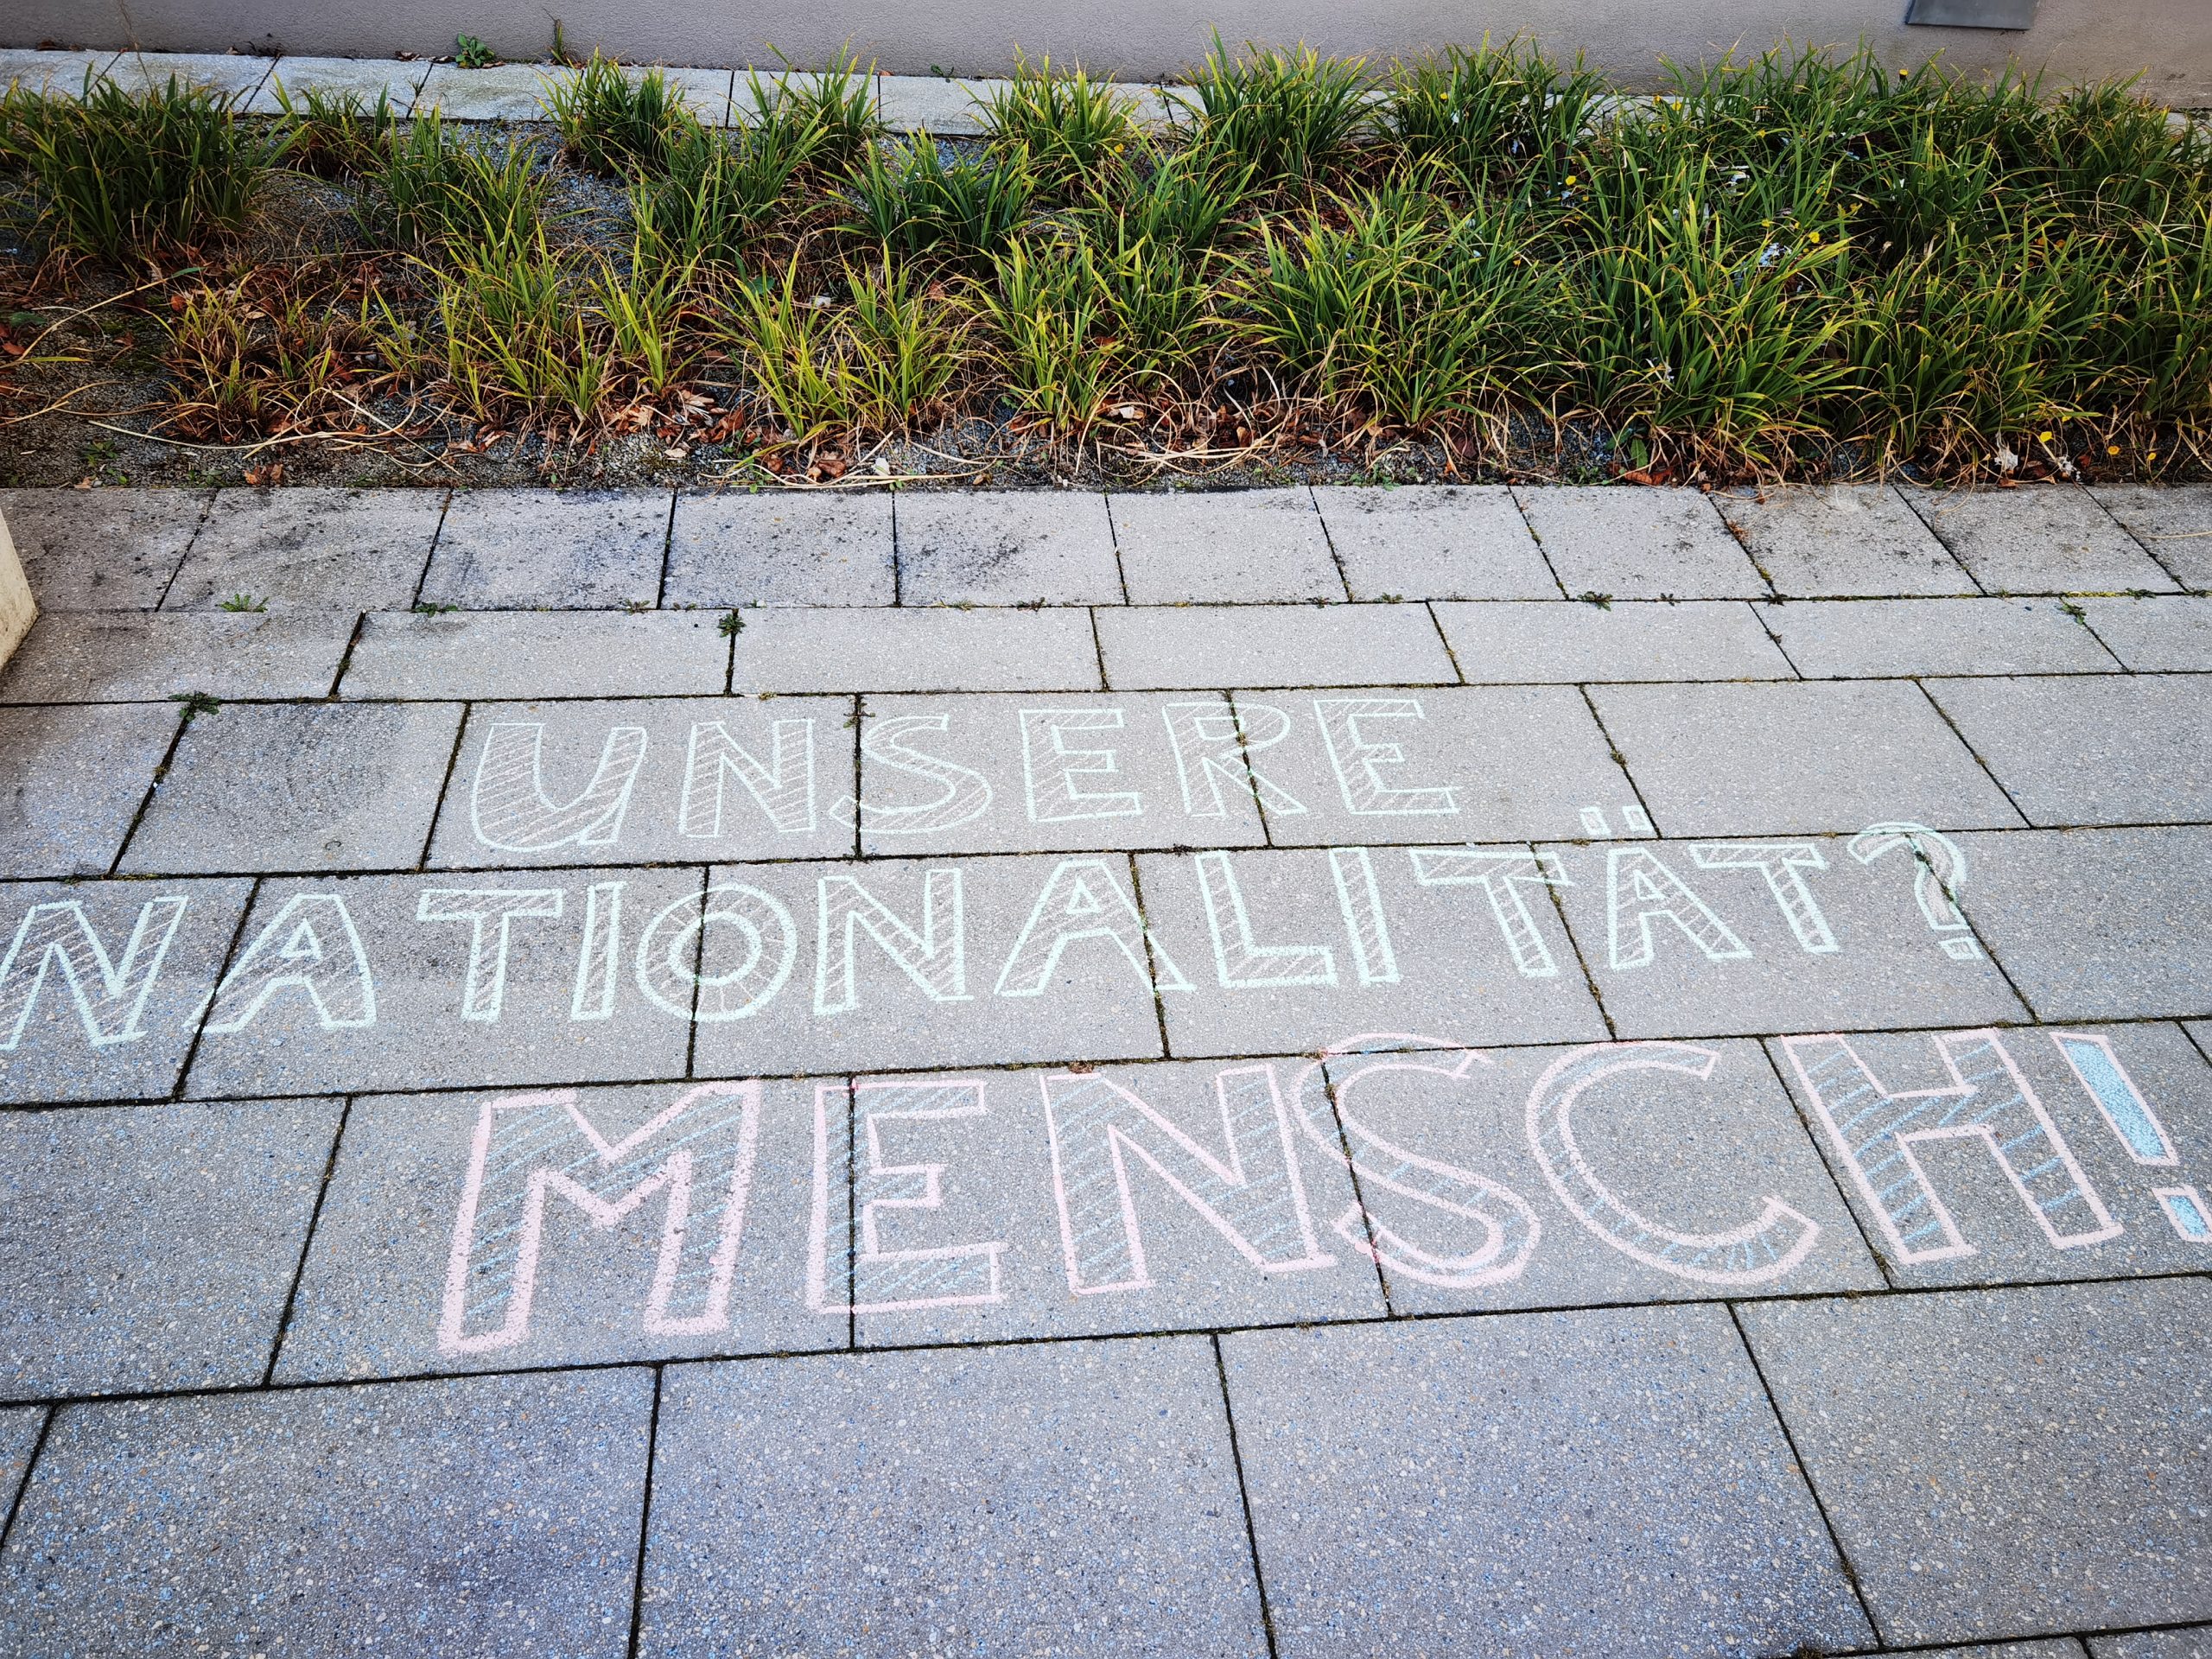 UNSERE
NATIONALITÄT?
MENSCH!